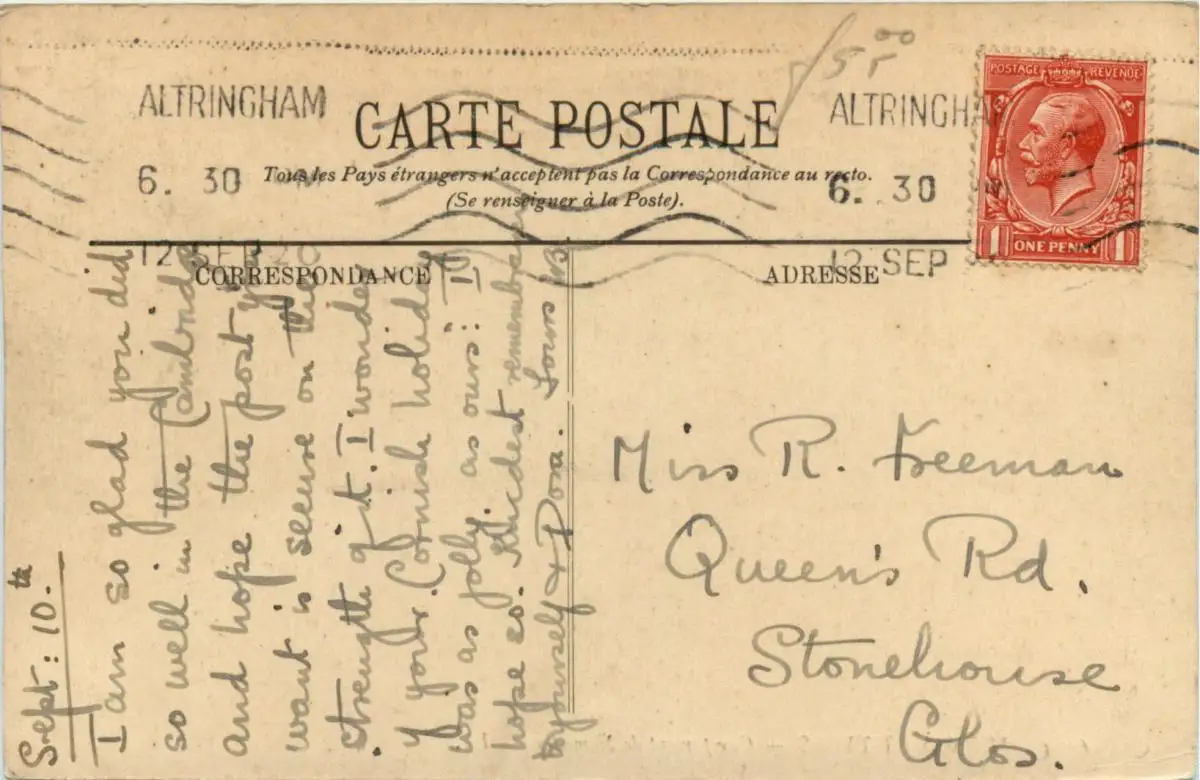 5.00
ALTRINGHAM
6. 30 PM
12 SEP 20
ALTRINGHA
6. 30
12 SEP
POSTAGE REVENUE
1 ONE PENNY 1
CARTE POSTALE
Tous les Pays étrangers n'acceptent pas la Correspondance au recto.
(Se renseigner à la Poste).
CORRESPONDANCE
ADRESSE
Sept: 10.th
I am so glad you did
so well in the Cambridge
and hope the post you
want is secure on the
strength of it. I wonder
if your Cornish holiday
was as jolly as ours: I
hope so. Kindest remembrances
to yourself & Dora. Yours
Miss R. Freeman
Queen's Rd.
Stonehouse
Glos.